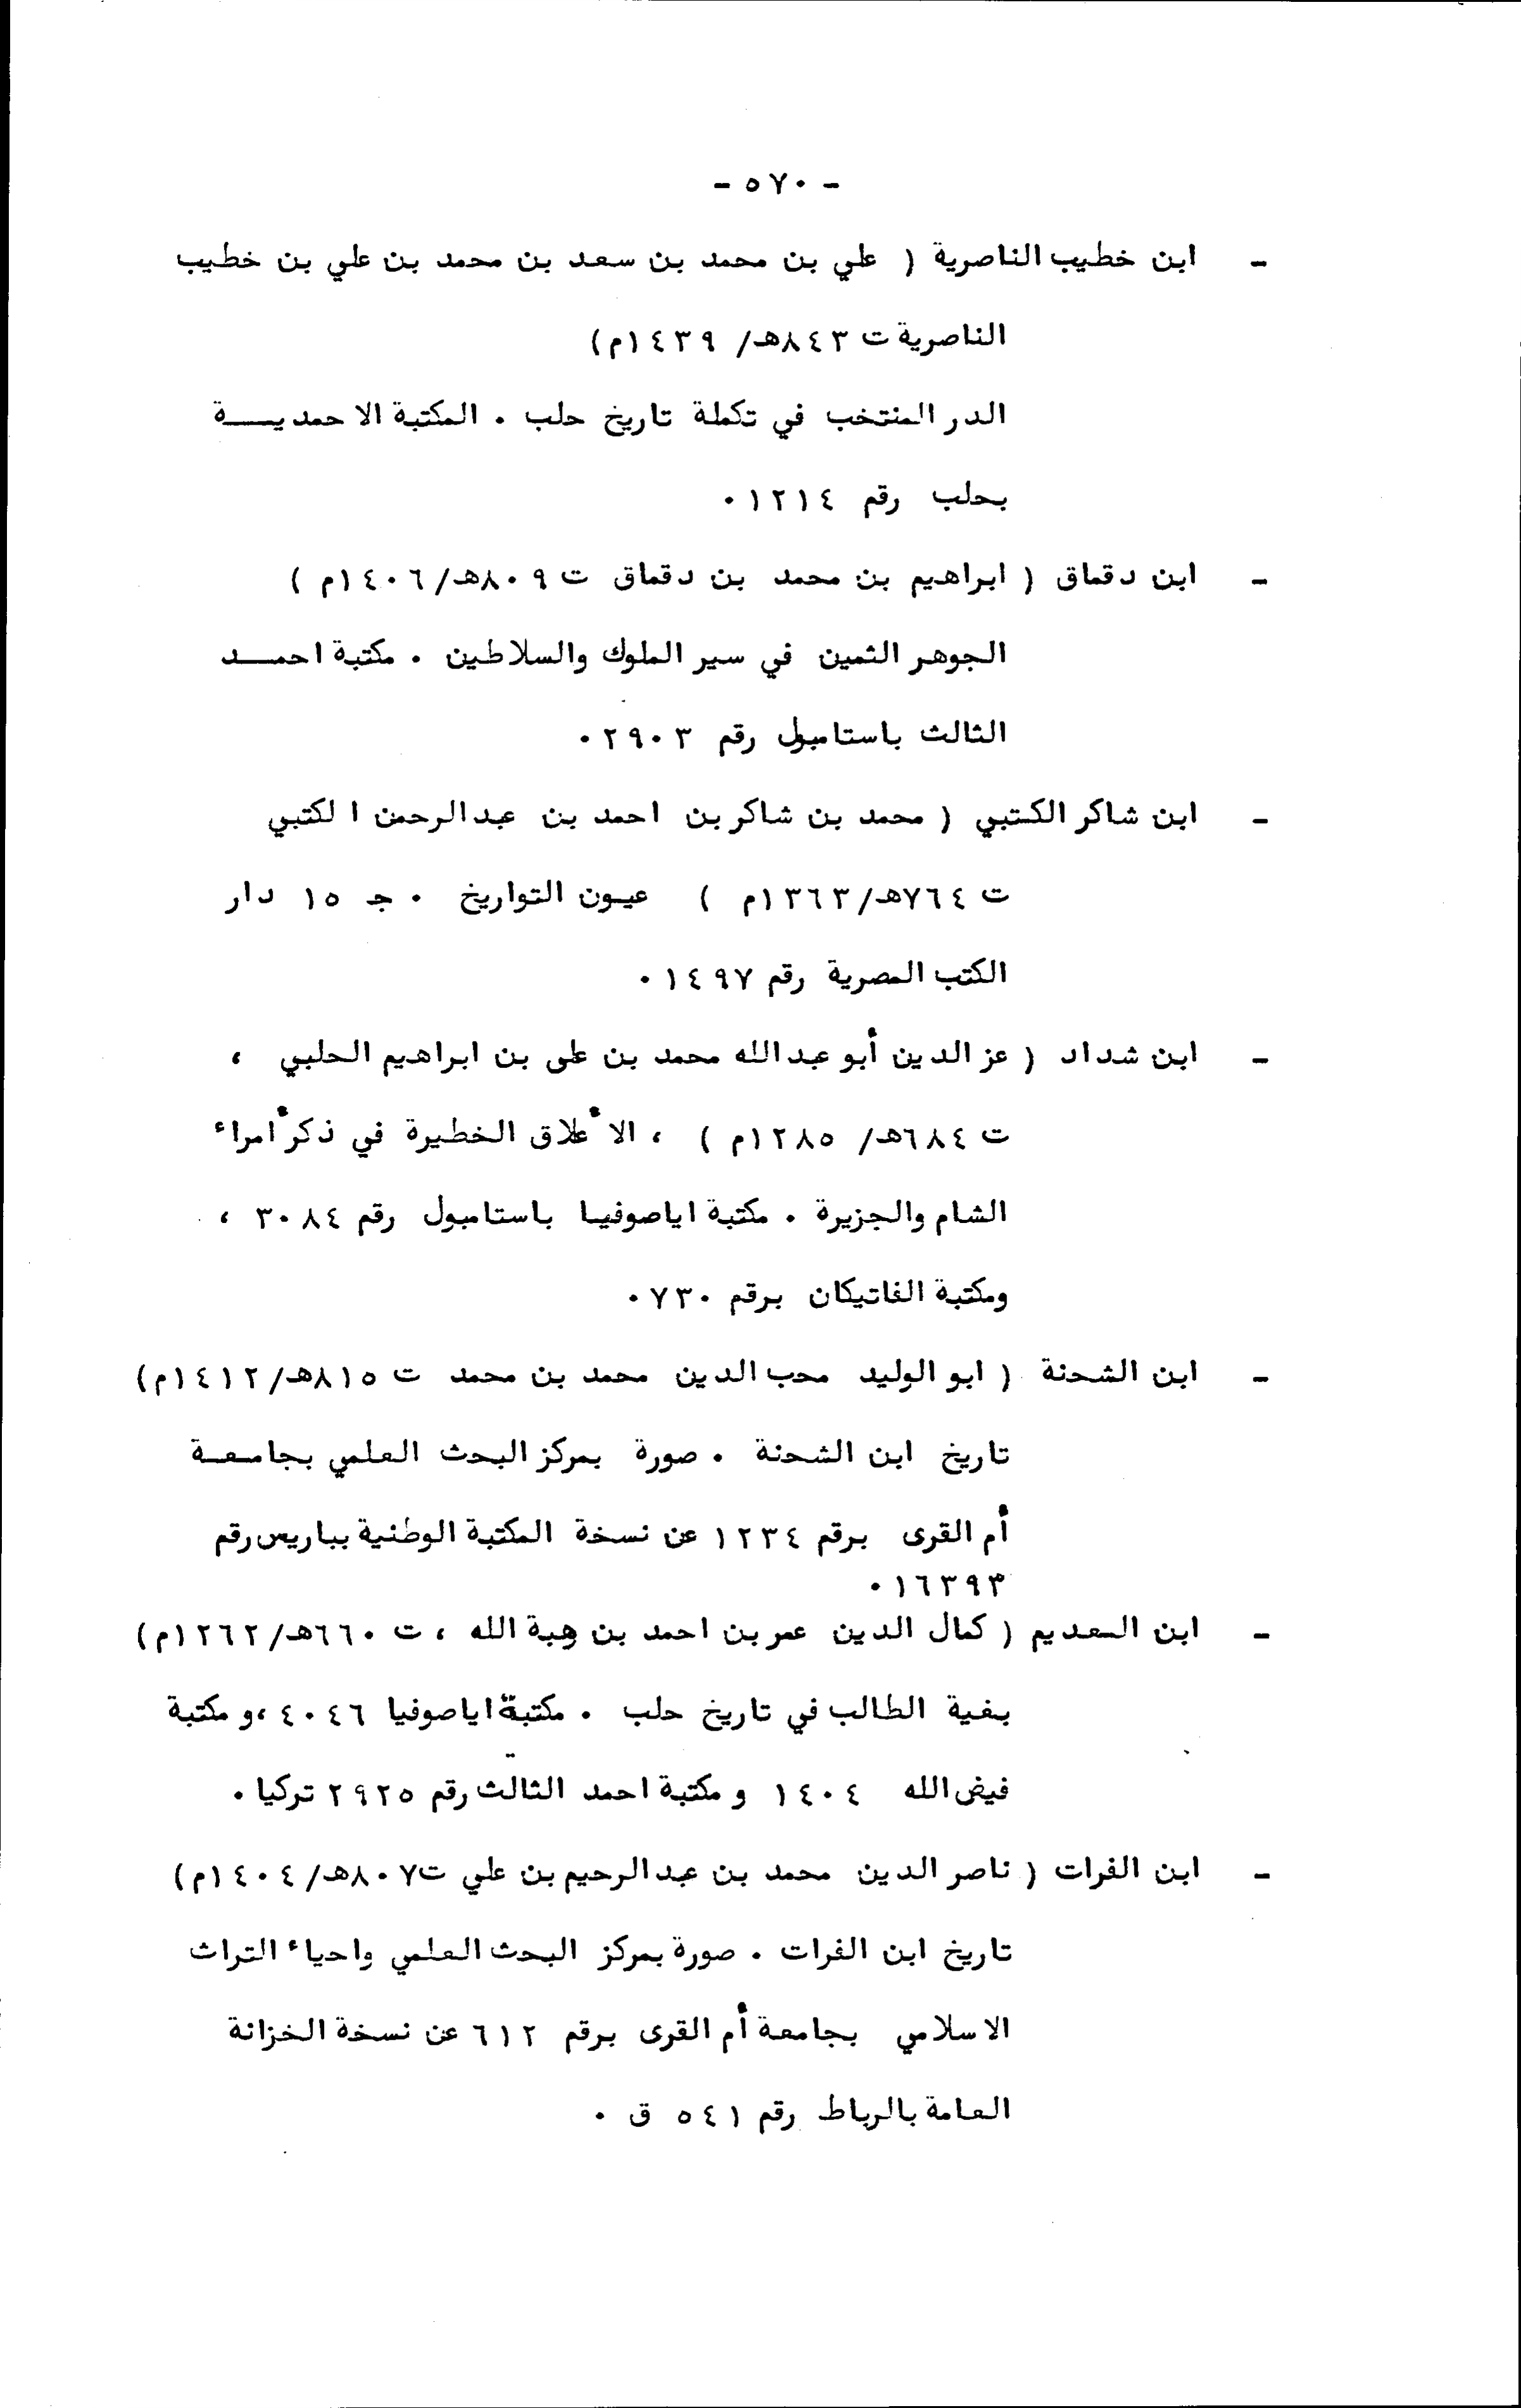 - ٥٧٠ -
- ابن خطيب الناصرية ( علي بن محمد بن سعد بن محمد بن علي بن خطيب
الناصرية ت ٨٤٣هـ/ ١٤٣٩م)
الدر المنتخب في تكملة تاريخ حلب . المكتبة الاحمديـــة
بحلب رقم ١٢١٤ .
- ابن دقماق ( ابراهيم بن محمد بن دقماق ت ٨٠٩هـ/١٤٠٦م )
الجوهر الثمين في سير الملوك والسلاطين . مكتبة احمـــد
الثالث باستامبول رقم ٢٩٠٣ .
- ابن شاكر الكتبي ( محمد بن شاكر بن احمد بن عبدالرحمن الكتبي
ت ٧٦٤هـ/١٣٦٣م ) عيون التواريخ . جـ ١٥ دار
الكتب المصرية رقم ١٤٩٧ .
- ابن شداد ( عز الدين أبو عبدالله محمد بن على بن ابراهيم الحلبي ،
ت ٦٨٤هـ/ ١٢٨٥م ) ، الأعلاق الخطيرة في ذكر أمراء
الشام والجزيرة . مكتبة اياصوفيا باستامبول رقم ٣٠٨٤ ،
ومكتبة الفاتيكان برقم ٧٣٠ .
- ابن الشحنة ( ابو الوليد محب الدين محمد بن محمد ت ٨١٥هـ/١٤١٢م)
تاريخ ابن الشحنة . صورة بمركز البحث العلمي بجامعـة
أم القرى برقم ١٢٣٤ عن نسخة المكتبة الوطنية بباريس رقم
١٦٣٩٣ .
- ابن العديم ( كمال الدين عمر بن احمد بن هبة الله ، ت ٦٦٠هـ/١٢٦٢م)
بغية الطالب في تاريخ حلب . مكتبة اياصوفيا ٤٠٤٦ ،و مكتبة
فيض الله ١٤٠٤ و مكتبة احمد الثالث رقم ٢٩٢٥ تركيا .
- ابن الفرات ( ناصر الدين محمد بن عبدالرحيم بن علي ت٨٠٧هـ/١٤٠٤م)
تاريخ ابن الفرات . صورة بمركز البحث العلمي واحياء التراث
الاسلامي بجامعة أم القرى برقم ٦١٢ عن نسخة الخزانة
العامة بالرباط رقم ٥٤١ ق .